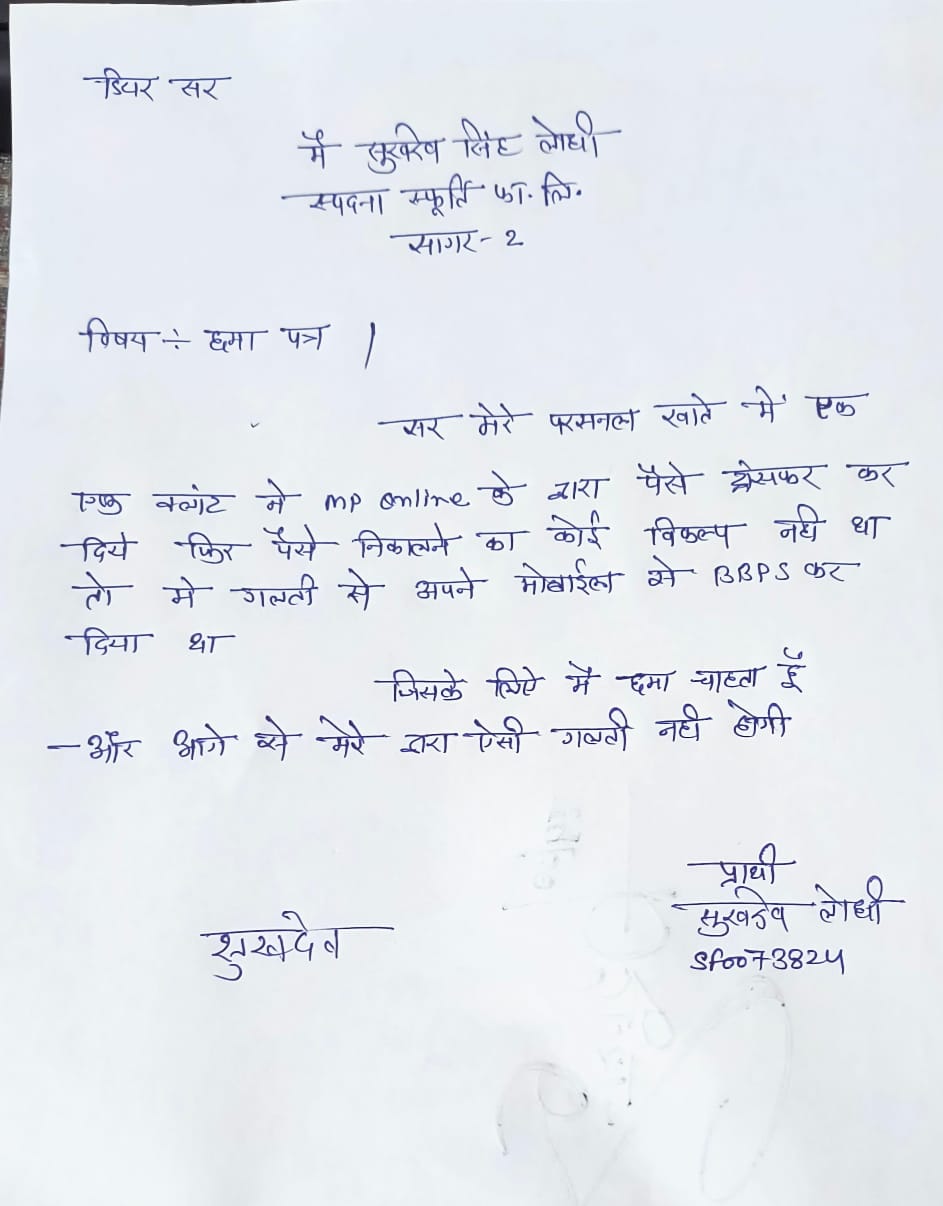 डियर सर
मैं सुखदेव सिंह लोधी
स्पदना स्फूर्ति फा. लि.
सागर - 2
विषय ÷ छमा पत्र |
सर मेरे परसनल खाते में एक
एक क्लांट ने mp online के द्वारा पैसे ट्रांसफर कर
दिये फिर पैसे निकालने का कोई विकल्प नही था
तो मे गलती से अपने मोबाईल से BBPS कर
दिया था
जिसके लिऐ मैं छमा चाहता हूँ
और आगे से मेरे द्वारा ऐसी गलती नही होगी
प्राथी
सुखदेव लोधी
सुखदेव
Sf0073824